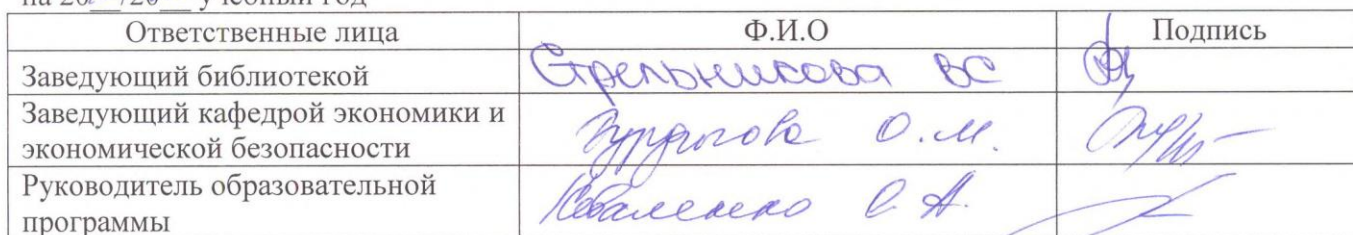 учебный год
Ответственные лица Ф.И.О Подпись
Заведующий библиотекой Стрельникова ВС
Заведующий кафедрой экономики и
экономической безопасности О.М.
Руководитель образовательной
программы Коваленко С.А.